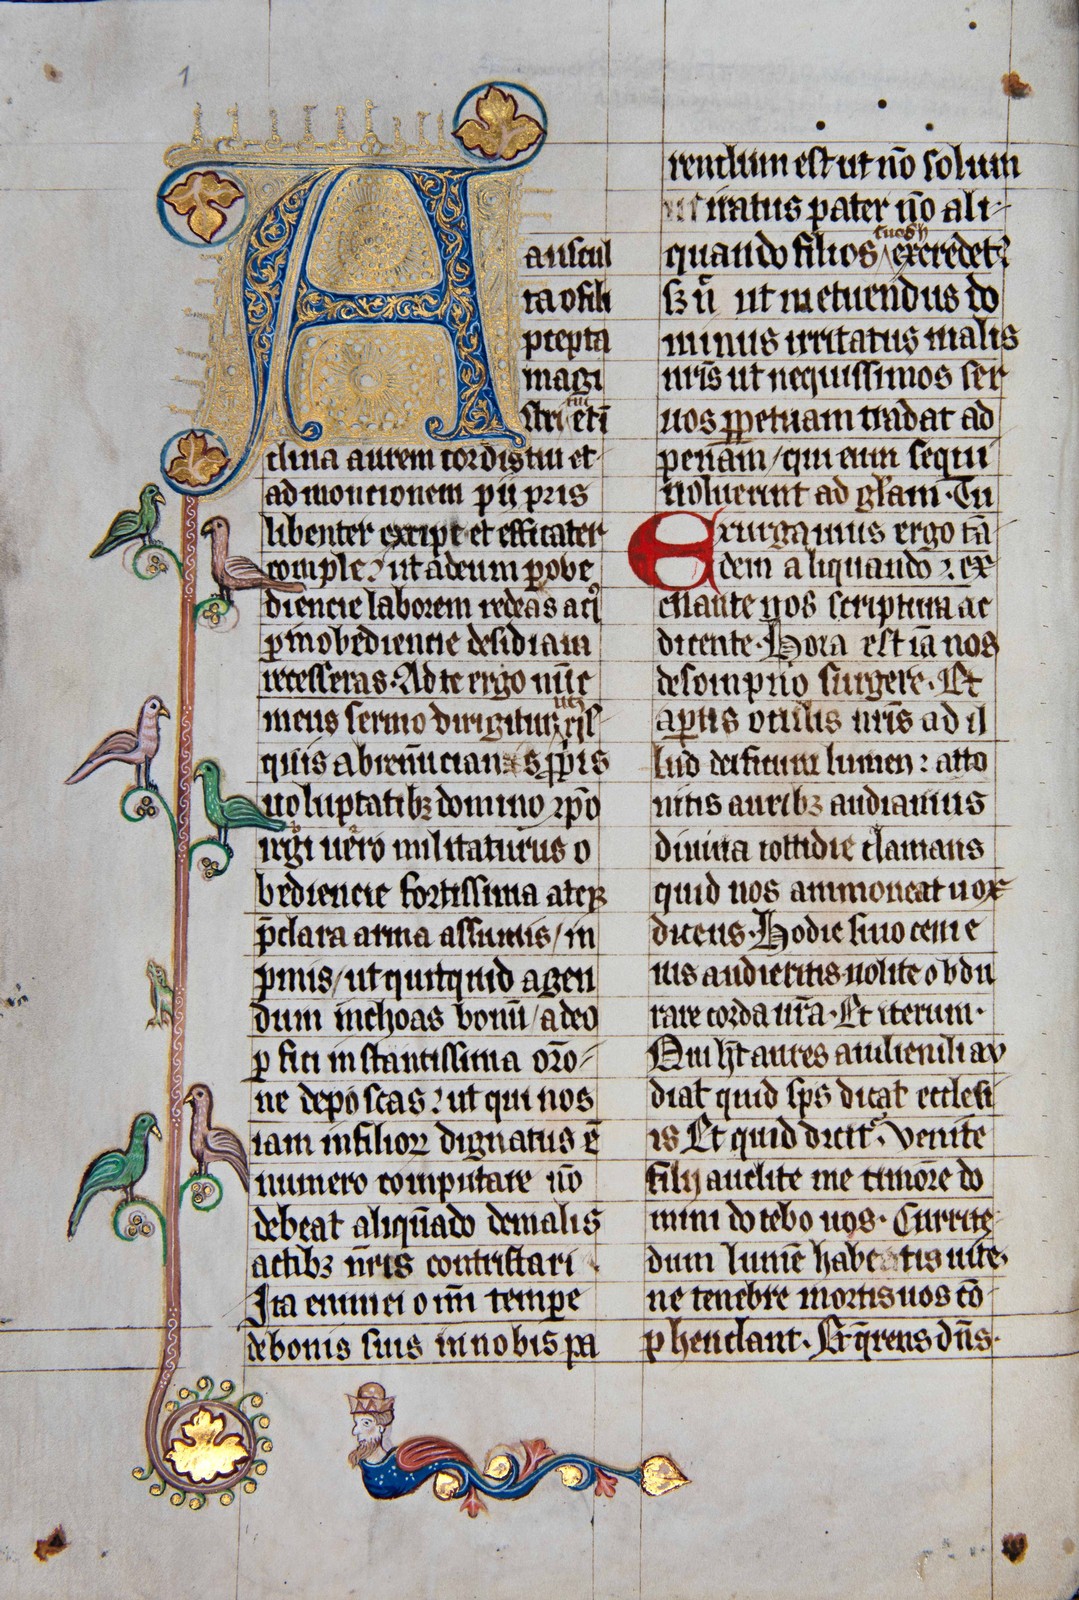 1
A
auscul
ta o fili
p̄cepta
magi
stri tui et ī
clina aurem cordis tui et
ad monicionem pij pr̄is
libenter excipe et efficaciter
comple ut ad eum p̱ obe
diencie laborem redeas a q̊
p̱ inobediencie desidiam
recesseras. Ad te ergo nūc
meus sermo dirigitur
quis abrenūcians p̱p̱iis
uoluptatibꝫ domino xp̄o
regi uero militaturus o
bediencie fortissima atqꝫ
p̄clara arma assumis / in
p̱mis / ut quitquid agen
dum inchoas bonū / ab eo
p̱ fici instantissima or̄o-
ne deposcas ut qui nos
iam in filioꝝ dignatus ē
numero computare nō
debeat aliqn̄ado de malis
actibꝫ n̄ris contristari
Ita enim ei om̄i temp̱e
de bonis suis in nobis pa
rendum est ut nō solum
iratus pater nō ali-
quando filios suos nō exeredetᷣ
sꝫ n̄ ut metuendus do
minus irritatus malis
n̄ris ut nequissimos ser
uos p̱petuam tradat ad
penam / qui eum sequi
noluerint ad gl̄am. Tu
Exurgamus ergo tā
dem aliquando ⁊ ex
citante nos scriptura ac
dicente. Hora est iā nos
de sompno surgere. Et
ap̱tis oculis n̄ris ad il
lud deificum lumen : atto
nitis auribꝫ audiamus
diuina cottidie clamans
quid nos ammoneat uox
dicens. Hodie si uocem e
ius audieritis nolite obdu
rare corda ūra. Et iterum.
Qui h̄t aures audiendi au
diat quid sp̄s dicat ecclesi
is Et quid dicit. Venite
filij audite me timorē do
mini docebo uos. Currite
dum lumē habetis uite
ne tenebre mortis uos cō
p̱hendant. Et q̄rens dn̄s.